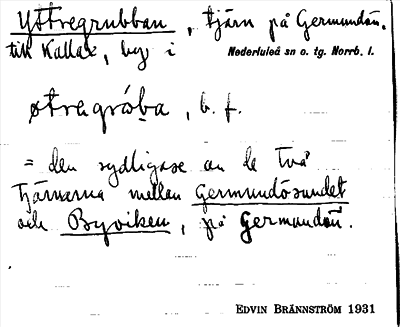 Yttregrubban, tjärn på Germundön.
till Kallax, by i Nederluleå sn o. tg. Norrb. l.
øtregróba, b. f.
= den sydligase av de två
tjärnarna mellan Germundösundet
och Byviken, på Germundön.
EDVIN BRÄNNSTRÖM 1931